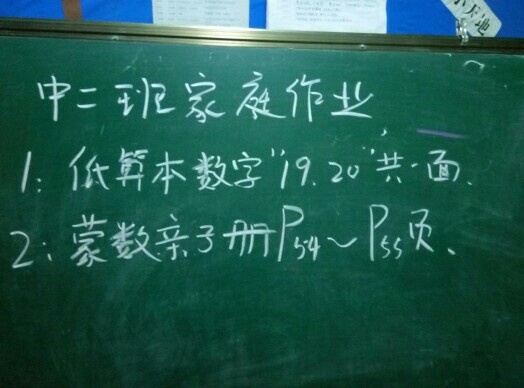 中二班家庭作业
1:低算本数字"19.20"共一面.
2:蒙数亲子册P54~P55页、